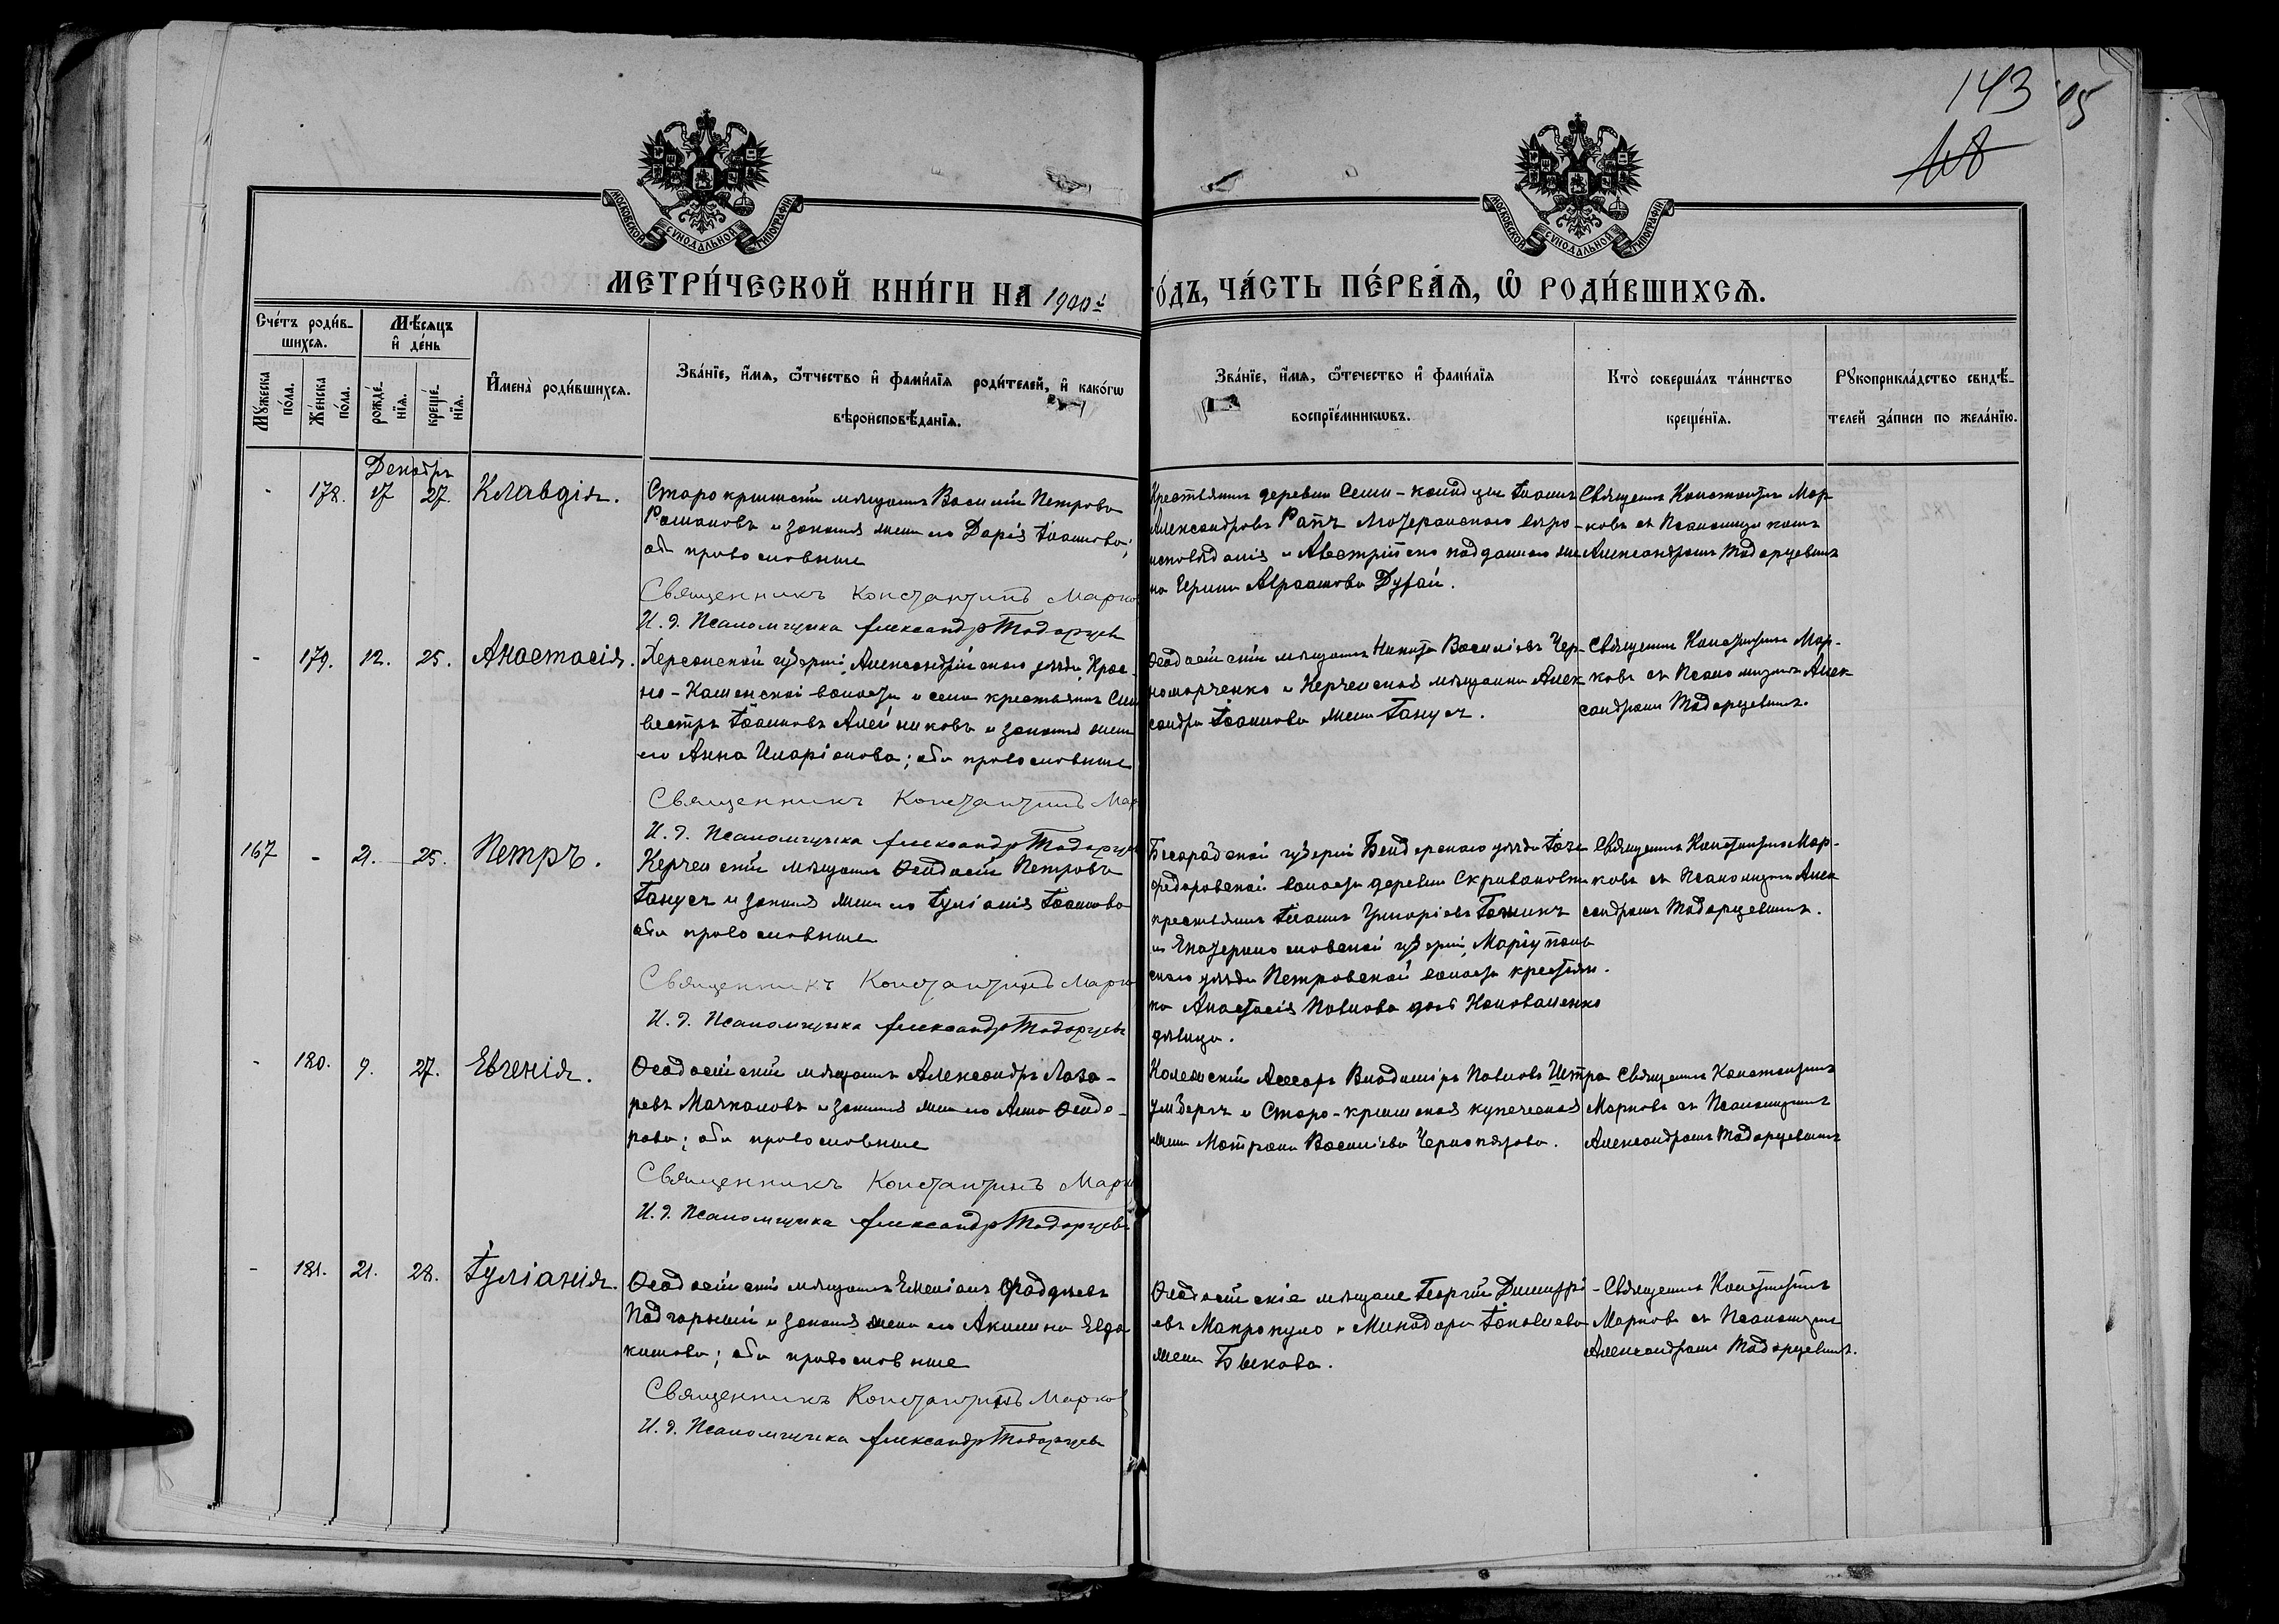 143
05
118
МОСКОВСКОЙ СѴНОДАЛЬНОЙ ТИПОГРАФІИ
МОСКОВСКОЙ СѴНОДАЛЬНОЙ ТИПОГРАФІИ
МЕТРИ́ЧЕСКОЙ КНИ́ГИ НА 1900й ГО́ДЪ, ЧА́СТЬ ПЕ́РВАЯ, Ѡ РОДИ́ВШИХСЯ.
Сче́тъ роди́в-
шихся.
Му́жеска по́ла.
Же́нска по́ла.
Мѣ́сяцъ
и де́нь
рожде́-
нїя.
креще́-
нїя.
Имена̀ роди́вшихся.
Зва́нїе, и́мя, ѻ́тчество и фами́лїя роди́телей, и како́гѡ
вѣроисповѣ́данїя.
Зва́нїе, и́мя, ѻ́течество и фами́лїя
воспрїе́мникѡвъ.
Кто̀ соверша́лъ та́инство
креще́нїя.
Рꙋкоприкла́дство свидѣ́-
телей за́писи по жела́нїю.
Декабрь
- 178. 17 27. Клавдія.
Старокрымскій мѣщанинъ Василій Петровъ
Романовъ и законная жена его Дарія Іоаннова;
оба православные
Священникъ Константинъ Марко
И. д. Псаломщика Александръ Тодорцев
Крестьянинъ деревни Іоаннъ
Александровъ Рапъ Лютеранскаго вѣро-
исповѣданія и Австрійско подданнаго же-
на Ирина Авраамова Дуфай.
Священникъ Константинъ Мар-
ковъ съ Псаломщикомъ
Александромъ Тодорцевымъ
- 179. 12. 25. Анастасія.
Херсонской губерніи, Александрійскаго уѣзда, Крас-
но-Каменской волости и села крестьянинъ Силь
вестръ Іоанновъ Алейниковъ и законная жена
его Анна Иларіонова; оба православные
Священникъ Константинъ Мар
И. д. Псаломщика Александръ Тодорцев
Ѳеодосійскій мѣщанинъ Никита Васильевъ Чер-
номорченко и Керченская мѣщанина Алек
сандра Іоаннова жена Ганусъ.
Священникъ Константинъ Мар-
ковъ съ Псаломщик Алек
сандромъ Тодорцевымъ.
167 - 21. 25. Петръ.
Керченскій мѣщанинъ Ѳеодосій Петровъ
Ганусъ и законная жена его Іуліанія Іоаннова
оба православные
Священникъ Константинъ Марко
И. д. Псаломщика Александръ Тодорцевъ
Бессарабской губерніи Бендерскаго уѣзда
федоровской волости деревни Скривановки
крестьянинъ Іоаннъ Григорьевъ
и Екатеринославской губерніи, Маріуполь
скаго уѣзда Петровской волости крестьян-
ка Анастасія Павлова дочь Коноваленко
дѣвица.
Священникъ Константинъ Мар-
ковъ съ Псаломщик Алек
сандромъ Тодорцевымъ.
- 180. 9. 27. Евгенія.
Ѳеодосійскій мѣщанинъ Александръ Лаза-
ревъ Мачкаловъ и законная жена его Анна Ѳеодо-
рова; оба православные
Священникъ Константинъ Марко
И. д. Псаломщика Александръ Тодорцевъ
Колежскій Асесоръ Владиміръ Павловъ
и Старо-крымская купеческая
жена Матрона Васильева Чернопятова.
Священникъ Константинъ
Марковъ съ Псаломщик
Александромъ Тодорцевымъ
- 181. 21. 28. Іуліанія.
Ѳеодосійскій мѣщанинъ Емеліанъ Ѳаддѣевъ
Подгорный и законная жена его Акилина Евдо
кимова; оба православные
Священникъ Константинъ Марков
И. д. Псаломщика Александръ Тодорцевъ
Ѳеодосійскіе мѣщане Георгій Димитрі-
евъ Макропуло и Минодора Іаковлева
жена Быкова.
Священникъ Константинъ
Марковъ съ Псаломщик
Александромъ Тодорцевымъ.